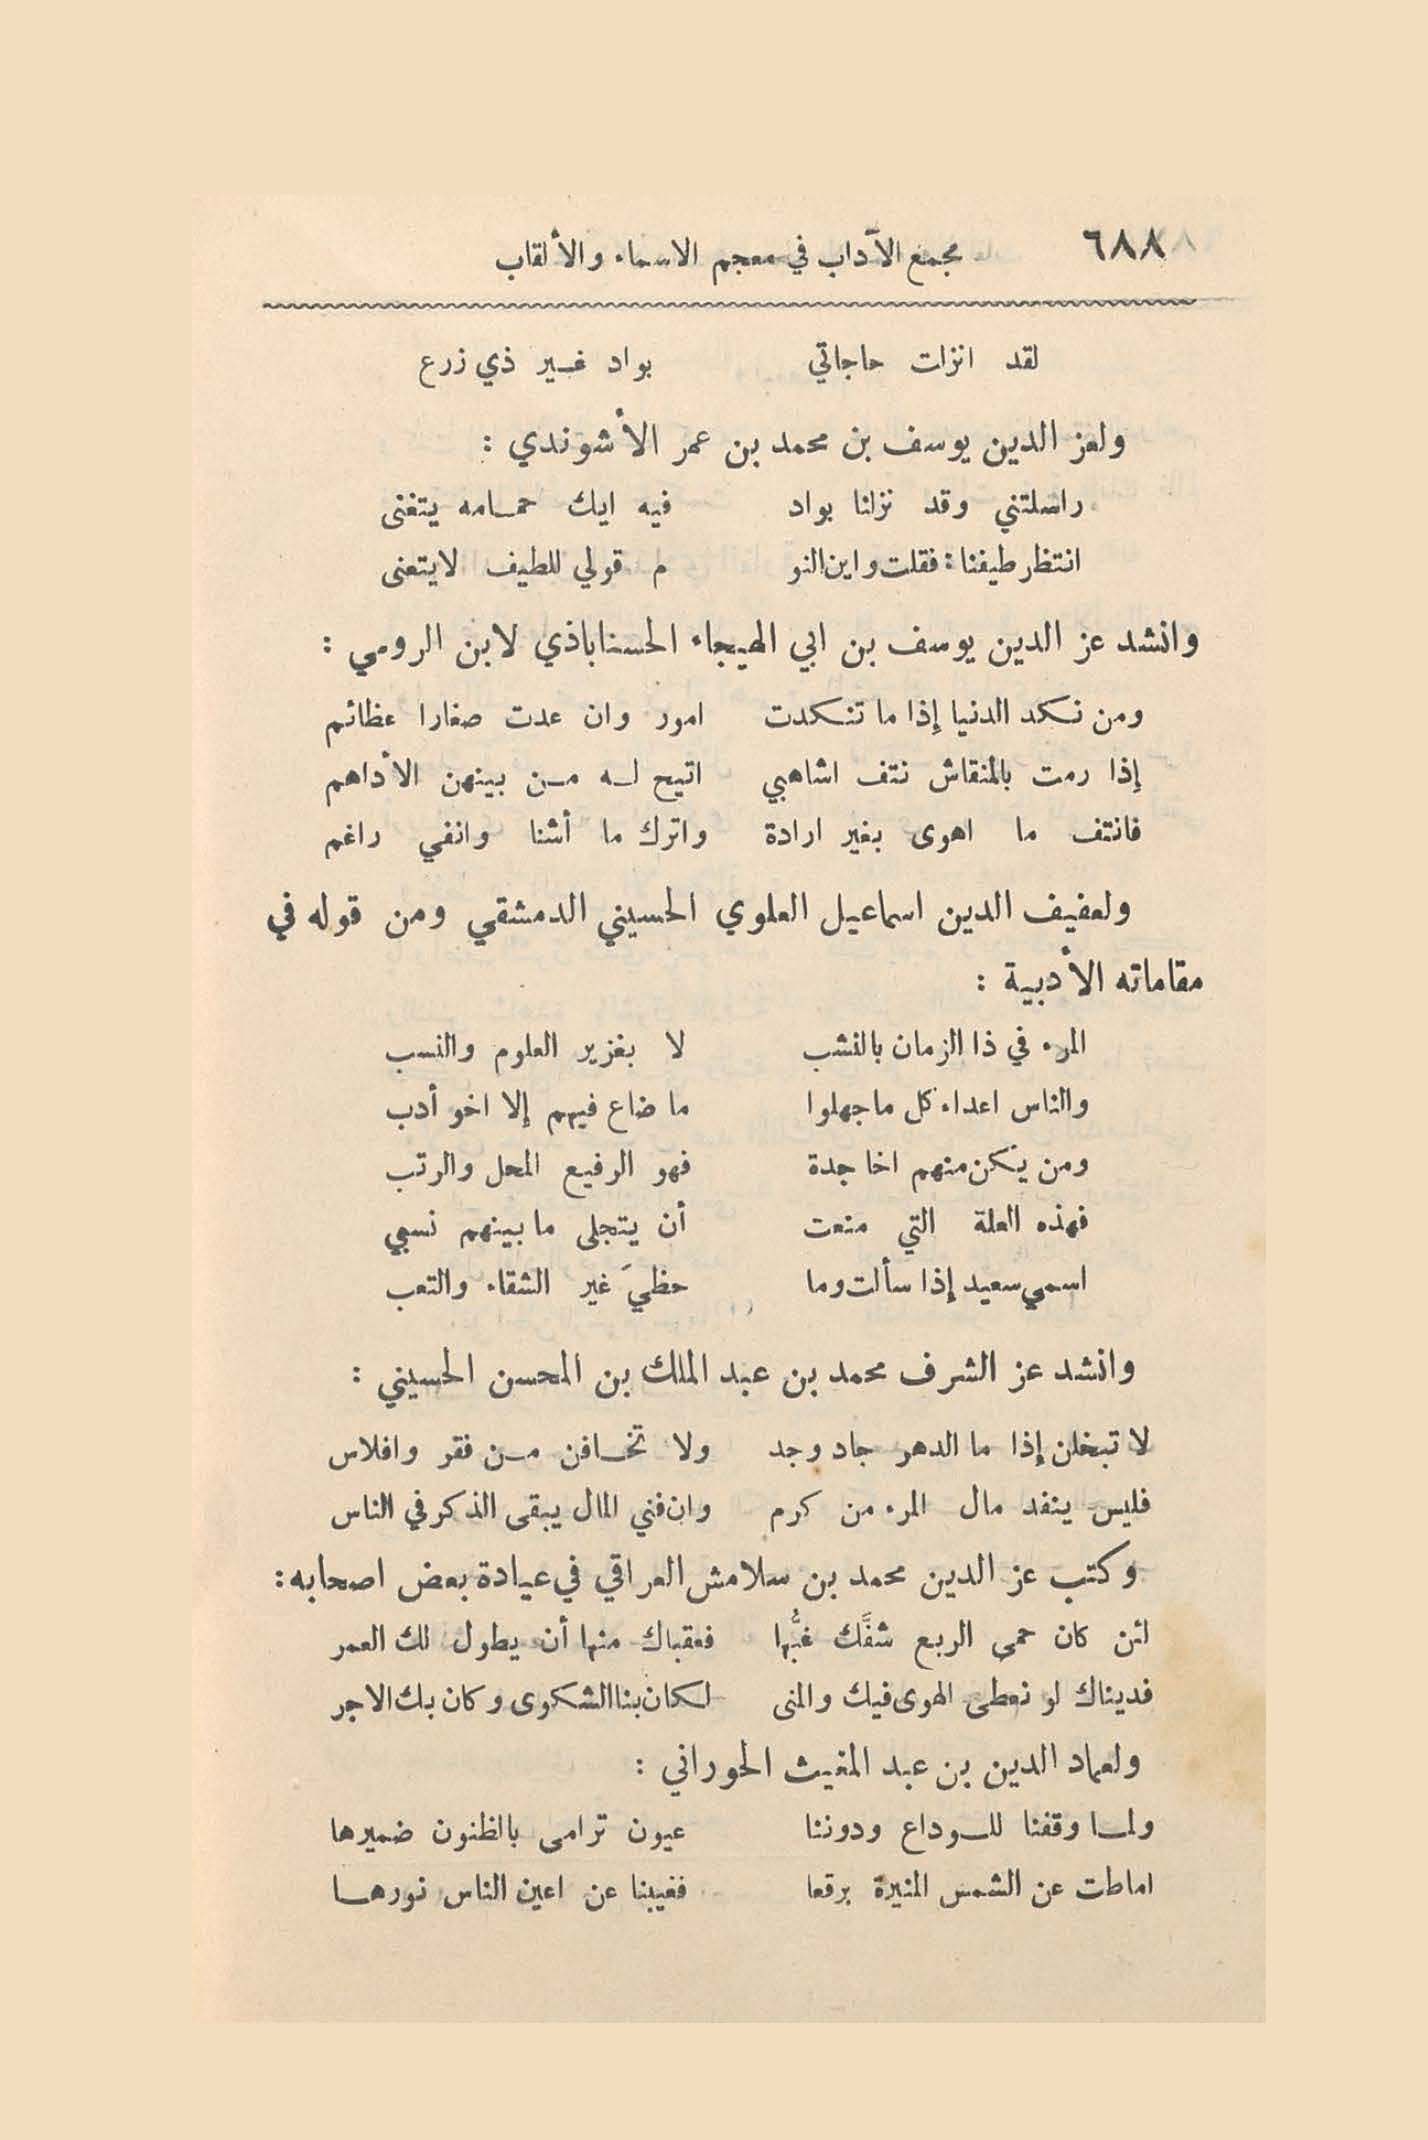 ٦٨٨
مجمع الآداب في معجم الاسماء والألقاب
لقد انزلت حاجاتي بواد غير ذي زرع
ولعز الدين يوسف بن محمد بن عمر الأشوندي :
راسلتني وقد نزلنا بواد فيه ايك حمامه يتغنى
انتظر طيفنا : فقلت واين النو م قولي للطيف لا يتعنى
وانشد عز الدين يوسف بن ابي الهيجاء الحسناباذي لابن الرومي :
ومن نكد الدنيا إذا ما تنكدت امور وان عدت صغارا عظائم
إذا رمت بالمنقاش نتف اشاهبي اتيح له من بينهن الأداهم
فانتف ما اهوى بغير ارادة واترك ما أشنا وانفي راغم
ولعفيف الدين اسماعيل العلوي الحسيني الدمشقي ومن قوله في
مقاماته الأدبية :
المرء في ذا الزمان بالنشب لا بغزير العلوم والنسب
والناس اعداء كل ما جهلوا ما ضاع فيهم إلا اخو أدب
ومن يكن منهم اخا جدة فهو الرفيع المحل والرتب
فهذه العلة التي منعت أن يتجلى ما بينهم نسبي
اسمي سعيد إذا سألت وما حظيَ غير الشقاء والتعب
وانشد عز الشرف محمد بن عبد الملك بن المحسن الحسيني :
لا تبخلن إذا ما الدهر جاد وجد ولا تخافن من فقر وافلاس
فليس ينفد مال المرء من كرم وان فني المال يبقى الذكر في الناس
وكتب عز الدين محمد بن سلامش العراقي في عيادة بعض اصحابه :
لئن كان حمى الربع شفَّك غبُّها فعقباك منها أن يطول لك العمر
فديناك لو نعطى الهوى فيك والمنى لكان بنا الشكوى وكان بك الاجر
ولعماد الدين بن عبد المغيث الحوراني :
ولما وقفنا للوداع ودوننا عيون ترامى بالظنون ضميرها
اماطت عن الشمس المنيرة برقعا فغيبنا عن اعين الناس نورها